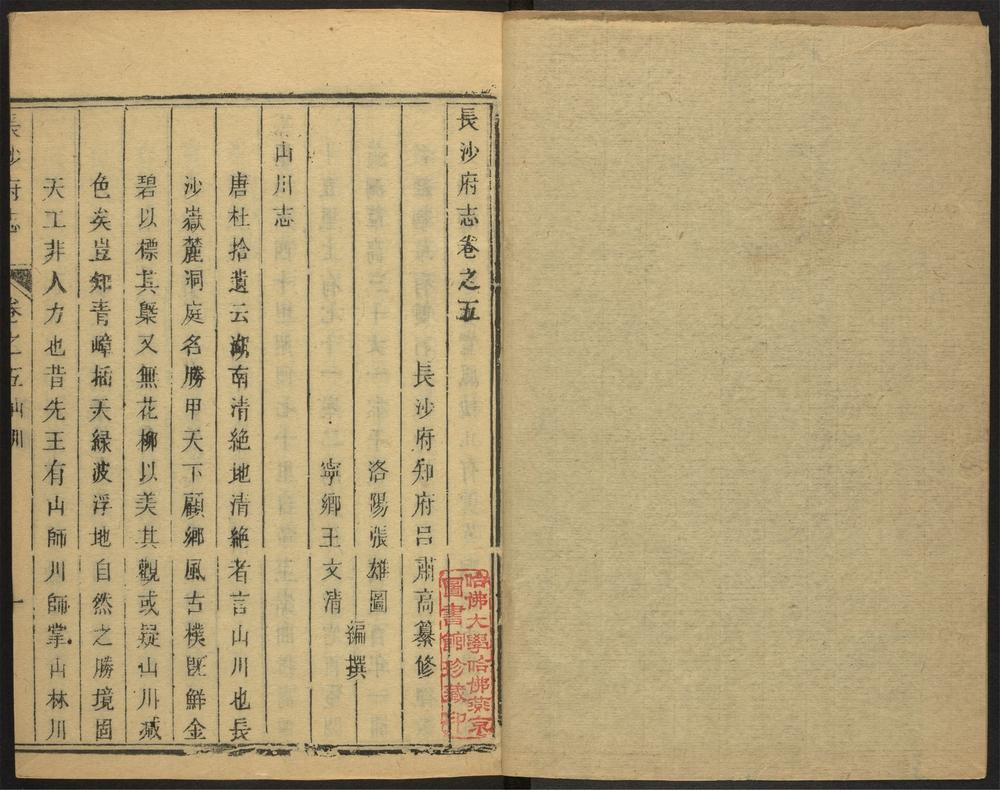 長沙府志卷之五
長沙府知府呂肅高纂修
洛陽張雄圖
寧鄉王文清
編撰
山川志
唐杜拾遺云湖南清絶地清絶者言山川也長
沙嶽麓洞庭名勝甲天下顧鄉風古樸旣鮮金
碧以標其槩又無花柳以美其觀或疑山川減
色矣豈知青嶂插天緑波浮地自然之勝境固
天工非人力也昔先王有山師川師掌山林川
長沙府志
卷之五山川
一
哈佛大學哈佛燕京
圖書館珍藏印